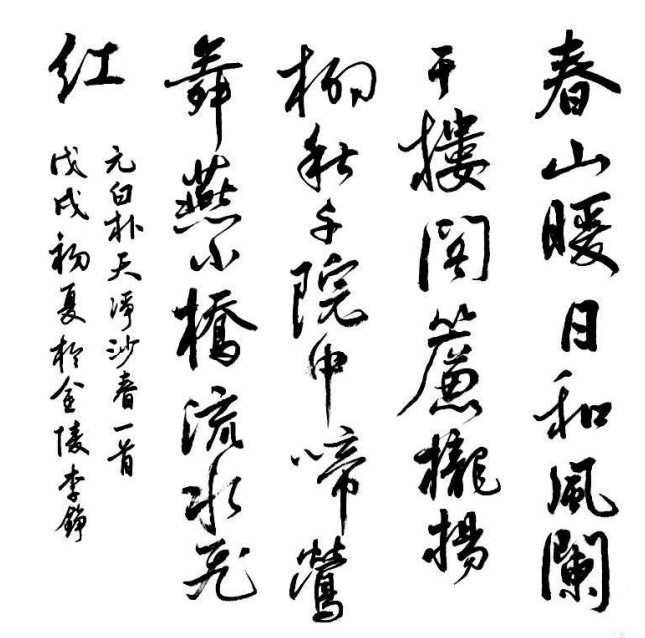 春山暖日和風闌
干樓閣簾櫳揚
柳秋千院中啼鶯
舞燕小橋流水飛
紅
元白朴天淨沙春一首
戊戌初夏於金陵李錚